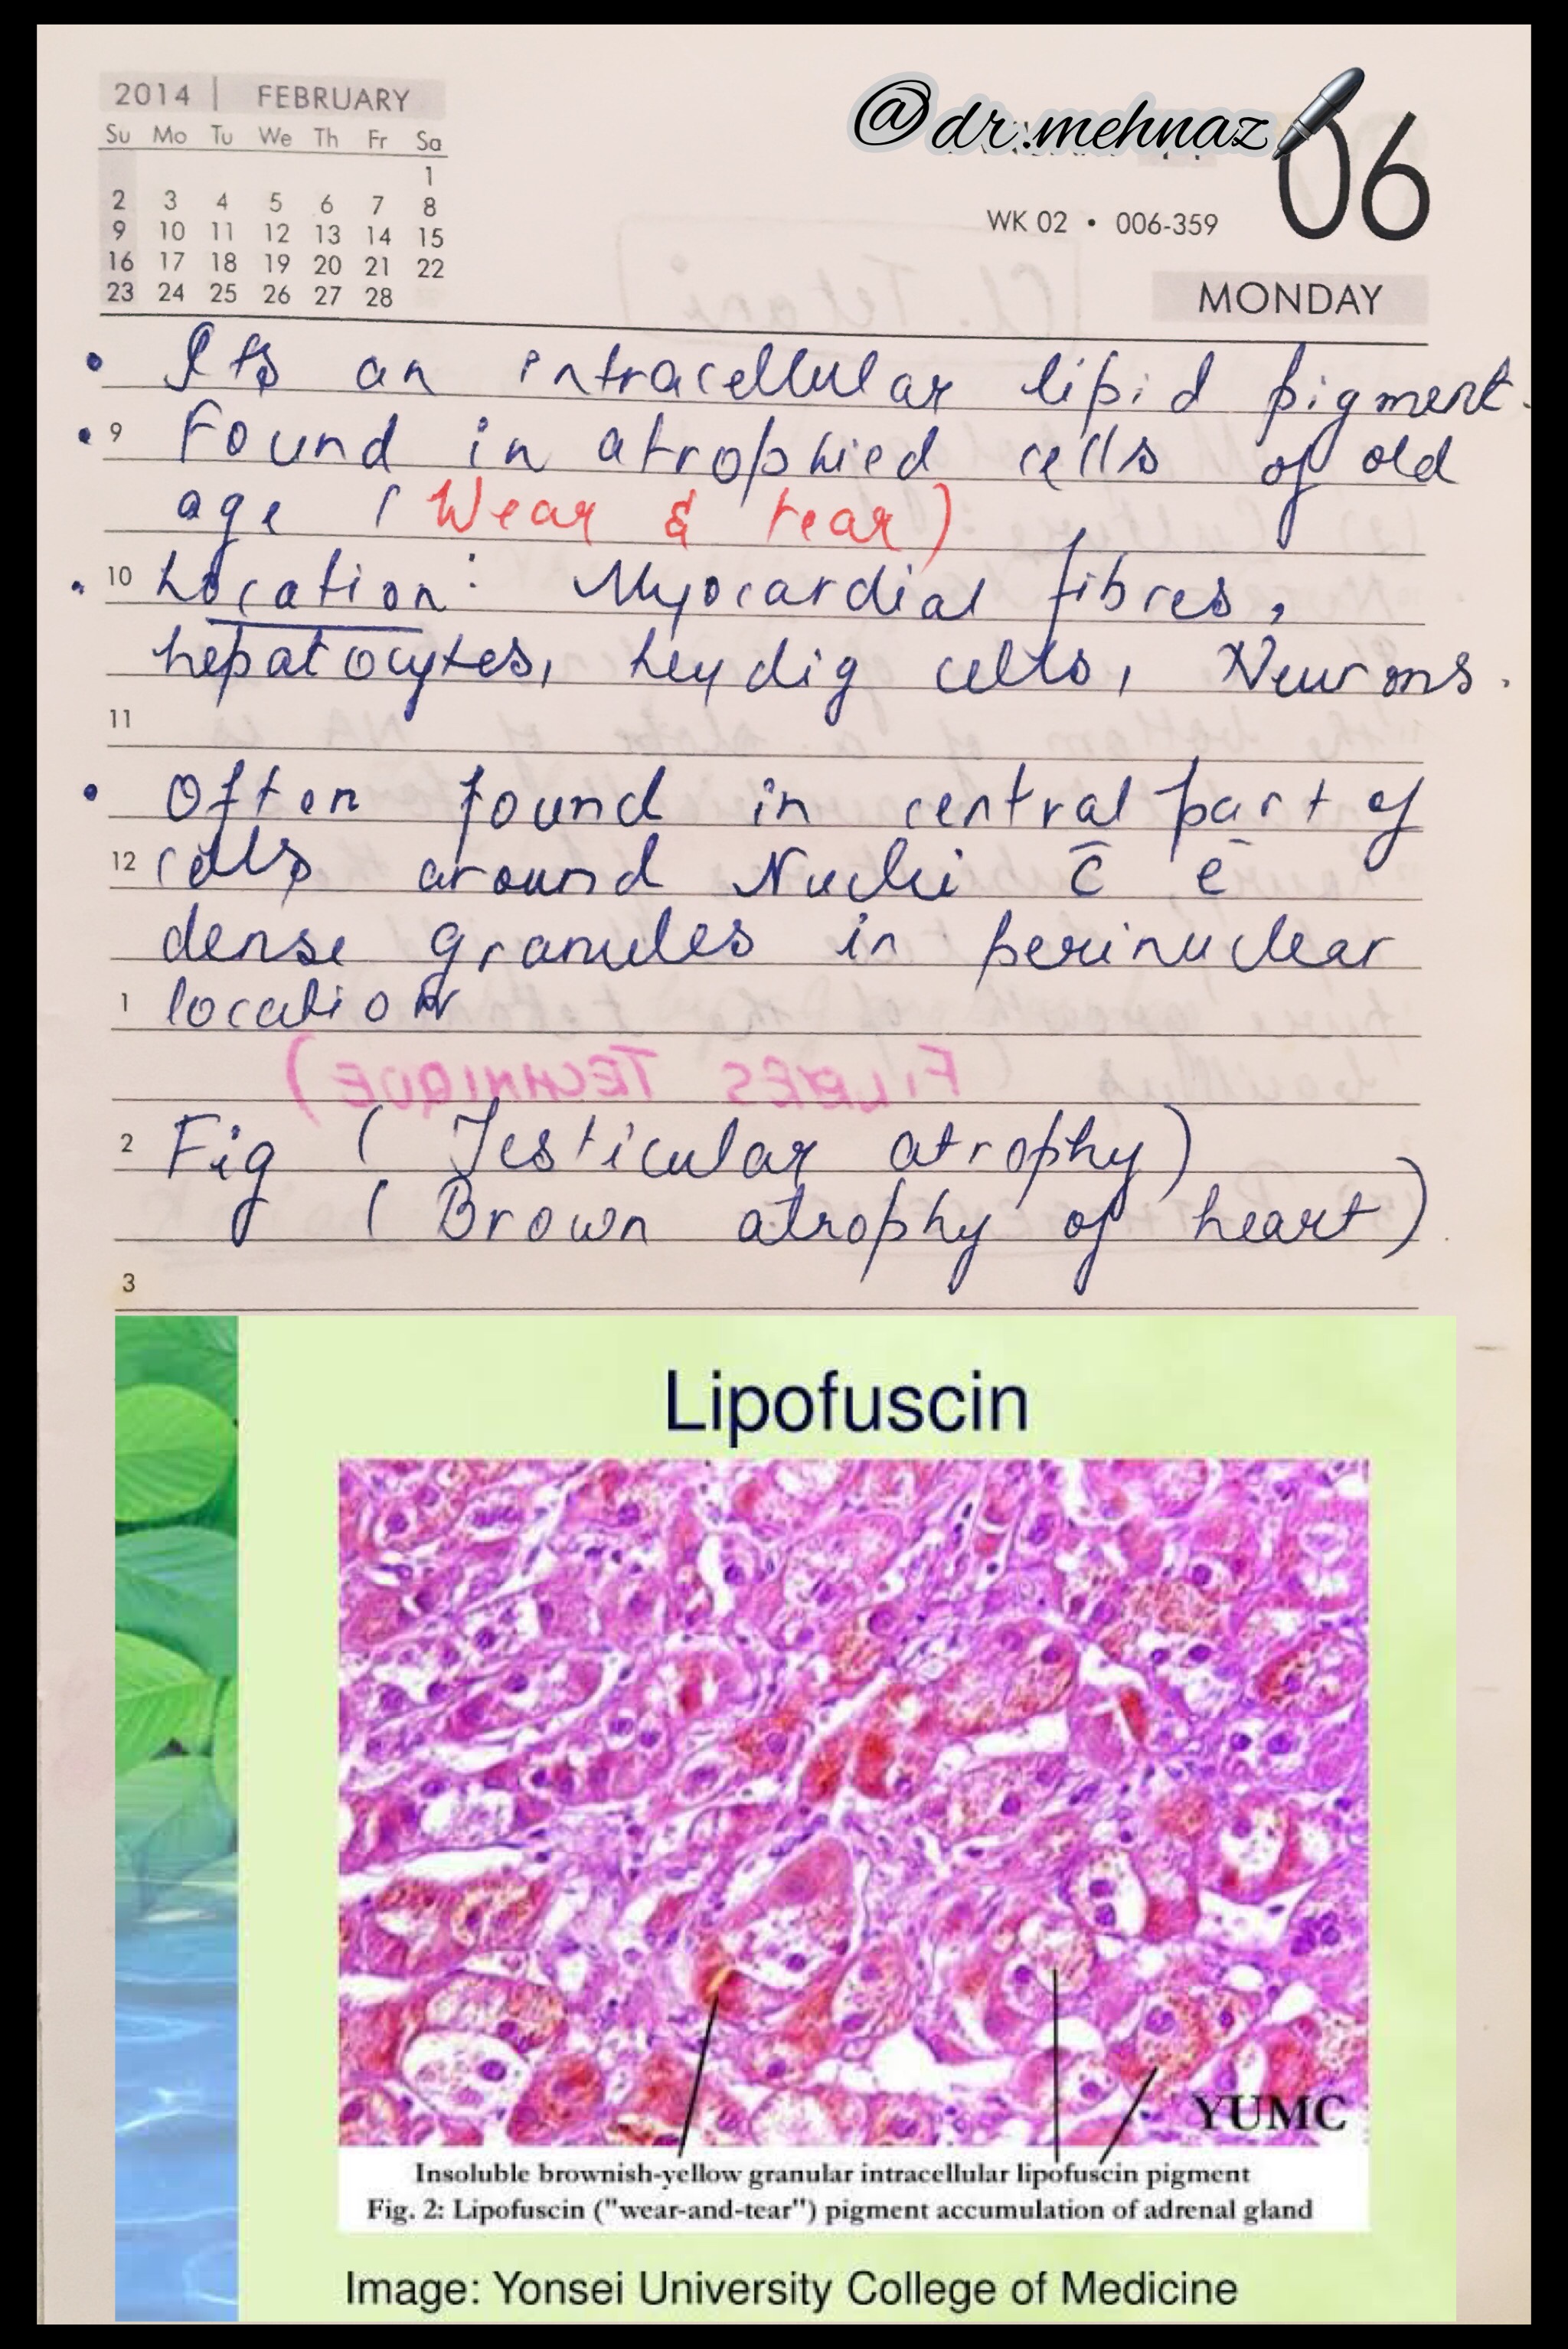 2014 | FEBRUARY
Su Mo Tu We Th Fr Sa
1
2 3 4 5 6 7 8
9 10 11 12 13 14 15
16 17 18 19 20 21 22
23 24 25 26 27 28
@dr.mehnaz
06
WK 02 • 006-359
MONDAY
• Its an intracellular lipid pigment.
• 9 Found in atrophied cells of old
age (Wear & tear)
• 10 Location: Myocardial fibres,
hepatocytes, Leydig cells, Neurons.
11
• Often found in central part of
12 cells around Nuclei c̄ ē
dense granules in perinuclear
1 location
FILDES TECHNIQUE)
2 Fig ( Testicular atrophy)
( Brown atrophy of heart)
3
Lipofuscin
YUMC
Insoluble brownish-yellow granular intracellular lipofuscin pigment
Fig. 2: Lipofuscin ("wear-and-tear") pigment accumulation of adrenal gland
Image: Yonsei University College of Medicine